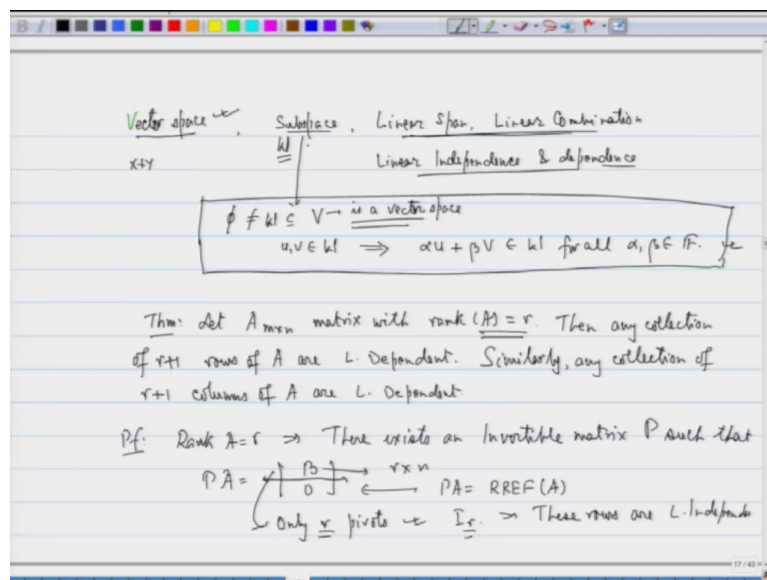 B I
Vector space , Subspace , Linear Span, Linear Combination
x+y W Linear Independence & dependence
ϕ ≠ W ⊆ V → is a vector space
u,v ∈ W ⟹ αu + βv ∈ W for all α, β ∈ F.
Thm: Let A m×n matrix with rank (A) = r. Then any collection
of r+1 rows of A are L. Dependent. Similarly, any collection of
r+1 columns of A are L. Dependent
Pf: Rank A = r ⇒ There exists an Invertible matrix P such that
PA = [ B 0 ] → r×n
← PA = RREF(A)
Only r pivots Ir. ⇒ These rows are L. Independe
17 / 43